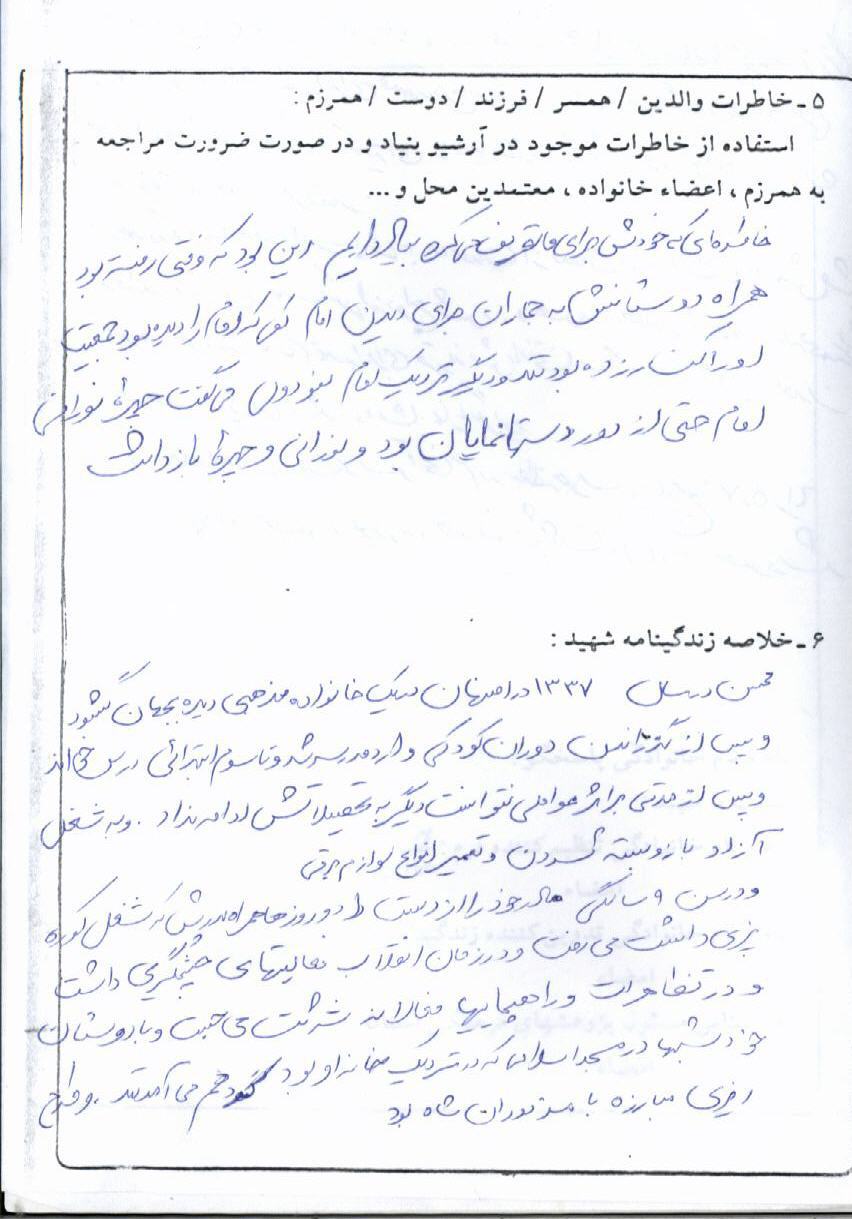 ۵ ـ خاطرات والدین / همسر / فرزند / دوست / همرزم :
استفاده از خاطرات موجود در آرشیو بنیاد و در صورت ضرورت مراجعه
به همرزم ، اعضاء خانواده ، معتمدین محل و ...
خاطره‌ای که خودش برای ما تعریف می‌کرد بیاد داریم این بود که وقتی رفته بود
همراه دوستانش به جماران برای دیدن امام که امام را دیده بود جمعیت
او را کنار زده بودند و دیگر نزدیک امام نبود ولی می‌گفت چهره نورانی
امام حتی از دور دستها نمایان بود و نورانی و چهره‌ای باز داشت
۶ ـ خلاصه زندگینامه شهید :
محسن در سال ۱۳۳۷ در اصفهان در یک خانواده مذهبی دیده بجهان گشود
و پس از گذراندن دوران کودکی وارد مدرسه شد و تا سوم ابتدائی درس خواند
و پس از مدتی بر اثر عواملی نتوانست دیگر به تحصیلاتش ادامه بداد . و به شغل
آزاد باز و بسته کردن و تعمیر انواع لوازم برقی
و در سن ۹ سالگی مادر خود را از دست داد و روزها همراه پدرش که شغل کوره
پزی داشت می رفت و در زمان انقلاب فعالیتهای چشمگیری داشت
و در تظاهرات و راهپیمایها فعالانه شرکت می جست و با دوستان
خود شبها در مسجد اسلام که در نزدیک خانه او بود گرد هم می آمدند . و طرح
ریزی مبارزه با مزدوران شاه بود